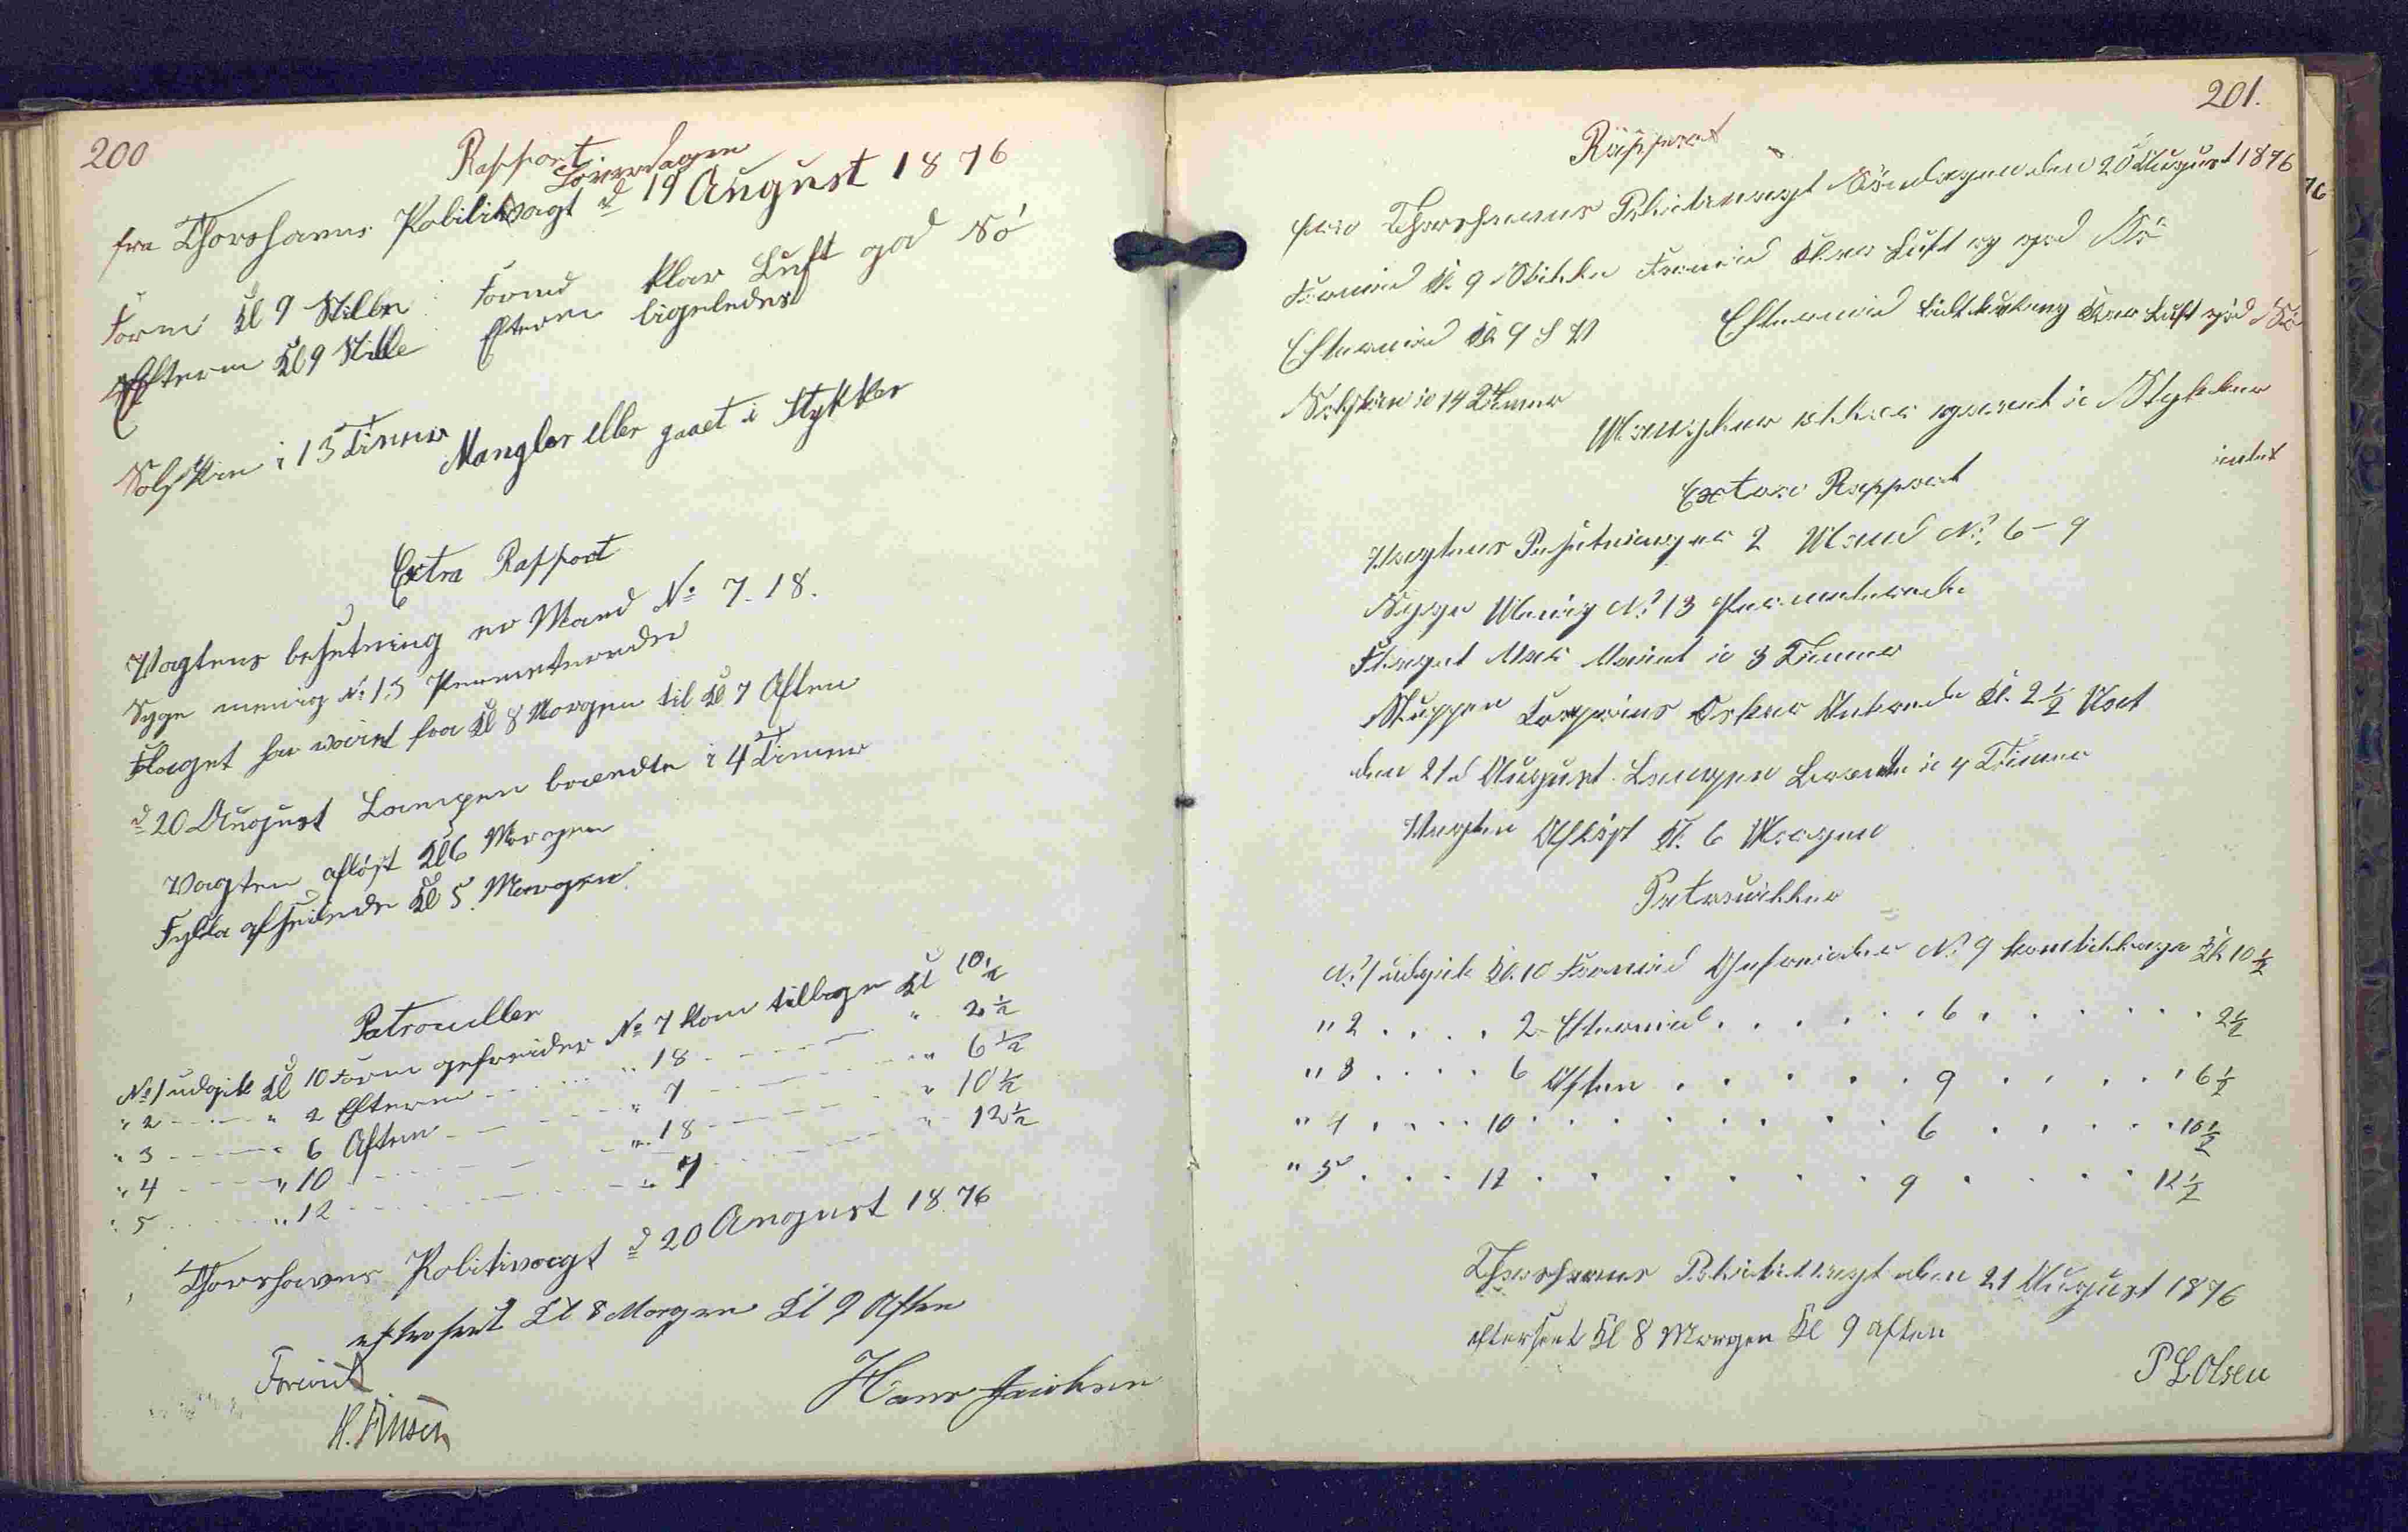 200
Rapport.
Löverdagen
fra Thorshavns Politivagt d 19 August 1876
Form Kl 9 Stille Formd klar Luft god Sö
Efterm Kl 9 Stille Efterm ligeledes
Solskin i 13 Timer
Mangler eller gaaet i Stykker
Extra Rapport
Vagtens besetning er Mand No 7-18.
Syge menig No 13 Permeterede
Flaget har vaiet fra Kl 8 Morgen til Kl 7 Aften
d 20 August Lampen brændte i 4 Timer
Vagten aflöst Kl 6 Morgen
Fylla afseilede Kl 5 Morgen
Patrouiller
No 1 udgik Kl 10 Form gefreider No 7 kom tilbage Kl 10½
" 2 " 2 Efterm " 18 " 2½
" 3 " 6 Aften " 7 " 6½
" 4 " 10 " 18 " 10½
" 5 " 12 " 7 " 12½
Thorshavns Politivagt d 20 August 1876
efterseet Kl 8 Morgen Kl 9 Aften
Hans Jacobsen
201.
Rapport
fra Thorshavns Politievagt Söndagen den 20 August 1876
Formid Kl. 9 Stille Formid Klar Luft og god Sö
Eftermid Kl 9 S V Eftermid lidt Klar Luft god Sö
Solskin i 14 Timer
Mangler eller gaaet i Stykker
intet
Extra Rapport
Vagtens Besetninger 2 Mand No. 6-9
Syge Menig No. 13 Permeterede
Flaget Har Vaiet i 3 Timer
Kl. 2½ Nat
den 21d August. Lampen Brændte i 4 Timer
Vagten Aflöst Kl. 6 Morgen
Patrouiller
No. 1 udgik Kl. 10 Formid Gefreider No. 9 kom tilbage Kl 10½
" 2 . . . . 2 Eftermid . . . . . . 6 . . . . . . 2½
" 3 . . . . 6 Aften . . . . . 9 . . . . 6½
" 4 . . . . 10 . . . . . . . . 6 . . . . . 10½
" 5 . . . 12 . . . . . . . 9 . . . . 12½
Thorshavns Politivagt den 21 August 1876
efterseet Kl 8 Morgen Kl 9 aften
P L Olsen